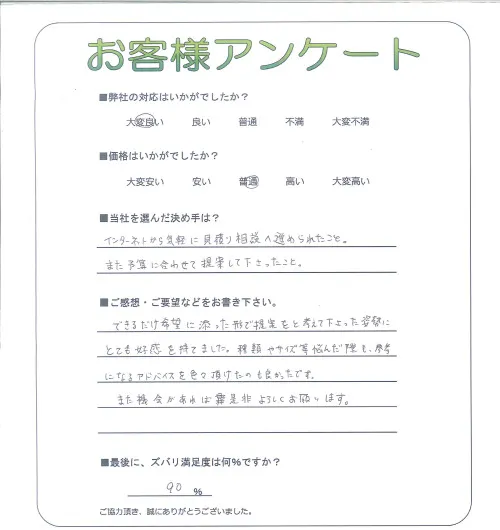 お客様アンケート
■弊社の対応はいかがでしたか？
大変良い 良い 普通 不満 大変不満
■価格はいかがでしたか？
大変安い 安い 普通 高い 大変高い
■当社を選んだ決め手は？
インターネットから気軽に見積り相談へ進められたこと。
また予算に合わせて提案して下さったこと。
■ご感想・ご要望などをお書き下さい。
できるだけ希望に添った形で提案をと考えて下さった姿勢に
とても好感を持てました。種類やサイズ等悩んだ際も、参考
になるアドバイスを色々頂けたのも良かったです。
また機会があれば是非よろしくお願いします。
■最後に、ズバリ満足度は何%ですか？
90 %
ご協力頂き、誠にありがとうございました。